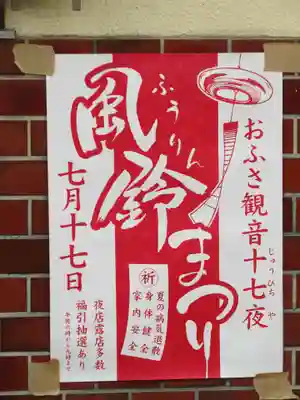 おふさ観音十七夜
じゅうひちや
風鈴まつり
ふうりん
七月十七日
祈
夏の病気退散
身体健全
家内安全
夜店露店多数
福引抽選あり